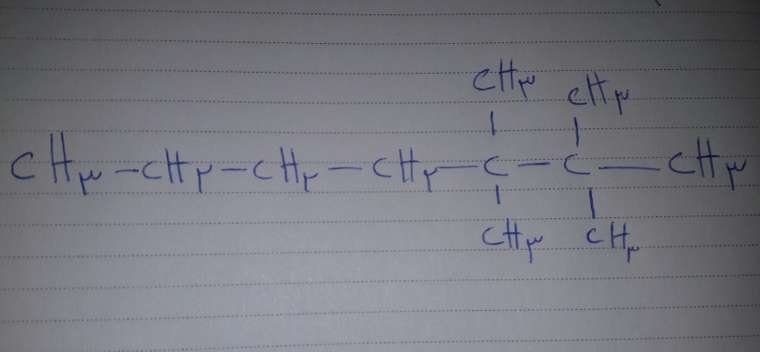 CH۳ CH۳
CH۳-CH۲-CH۲-CH۲-C-C-CH۳
CH۳ CH۳